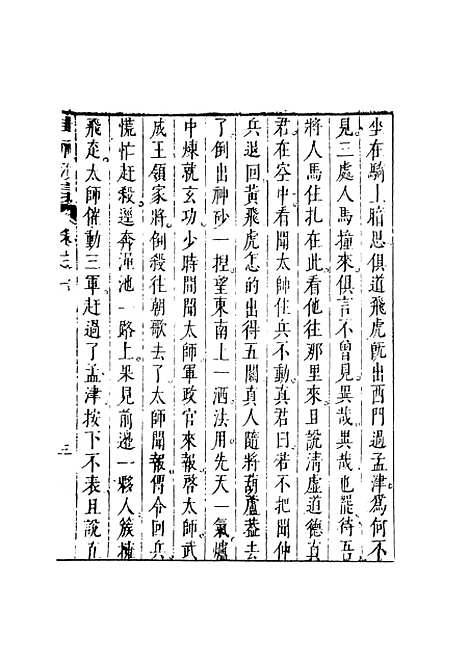 坐在騎上暗思俱道飛虎旣出西門過孟津爲何不
見三處人馬撞來俱言不曾見異哉異哉也罷待吾
將人馬住扎在此看他往那里來且說清虛道德真
君在空中看聞太師住兵不動真君曰若不把聞仲
兵退回黃飛虎怎的出得五關真人隨將葫蘆葢去
了倒出神砂一捏望東南上一洒法用先天一氣爐
中煉就玄功少時間聞太師軍政官來報啓太師武
成王領家將倒殺往朝歌去了太師聞報傳令回兵
慌忙赶殺逕奔澠池一路上果見前邊一夥人簇擁
飛走太師催動三軍赶過了孟津按下不表且說五
三